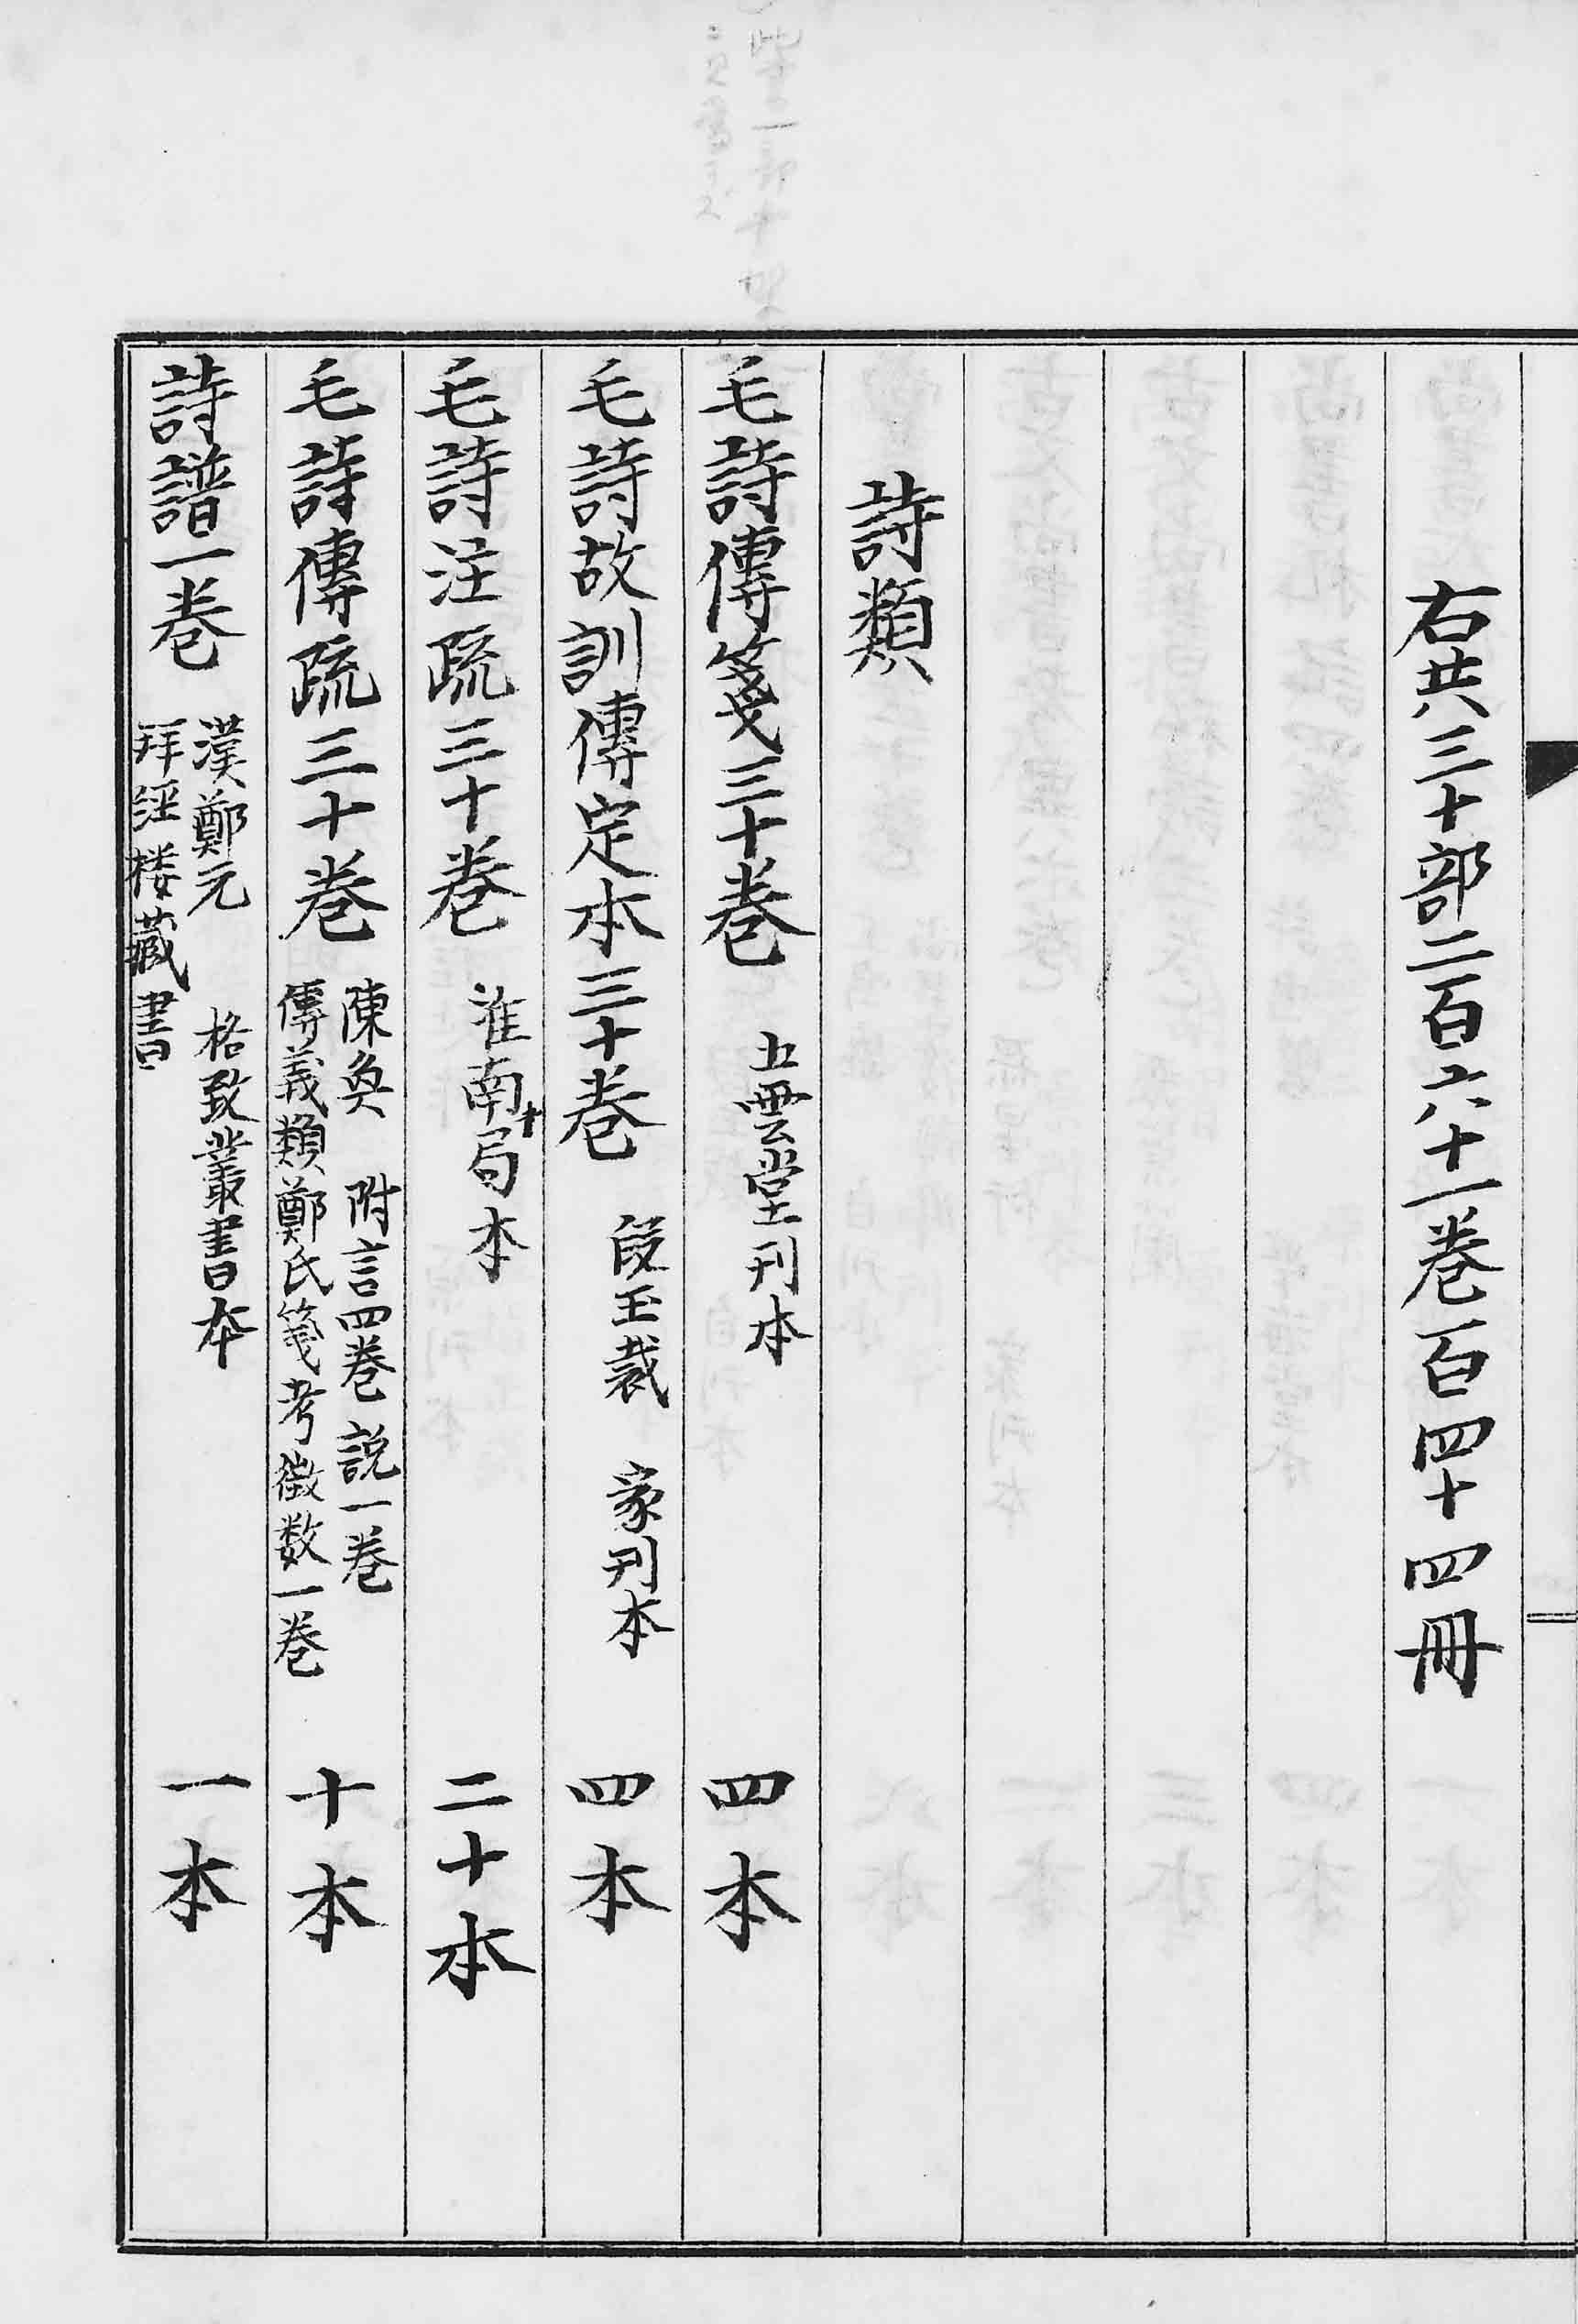 右共三十部二百六十一卷百四十四冊
詩類
毛詩傳箋三十卷 五雲堂刊本 四本
毛詩故訓傳定本三十卷 段玉裁 家刊本 四本
毛詩注疏三十卷 淮南局本 二十本
毛詩傳疏三十卷 陳奐 附言四卷 說一卷
傳義類鄭氏箋考徵数一卷 十本
詩譜一卷 漢鄭元 格致叢書本
拜經楼藏書 一本